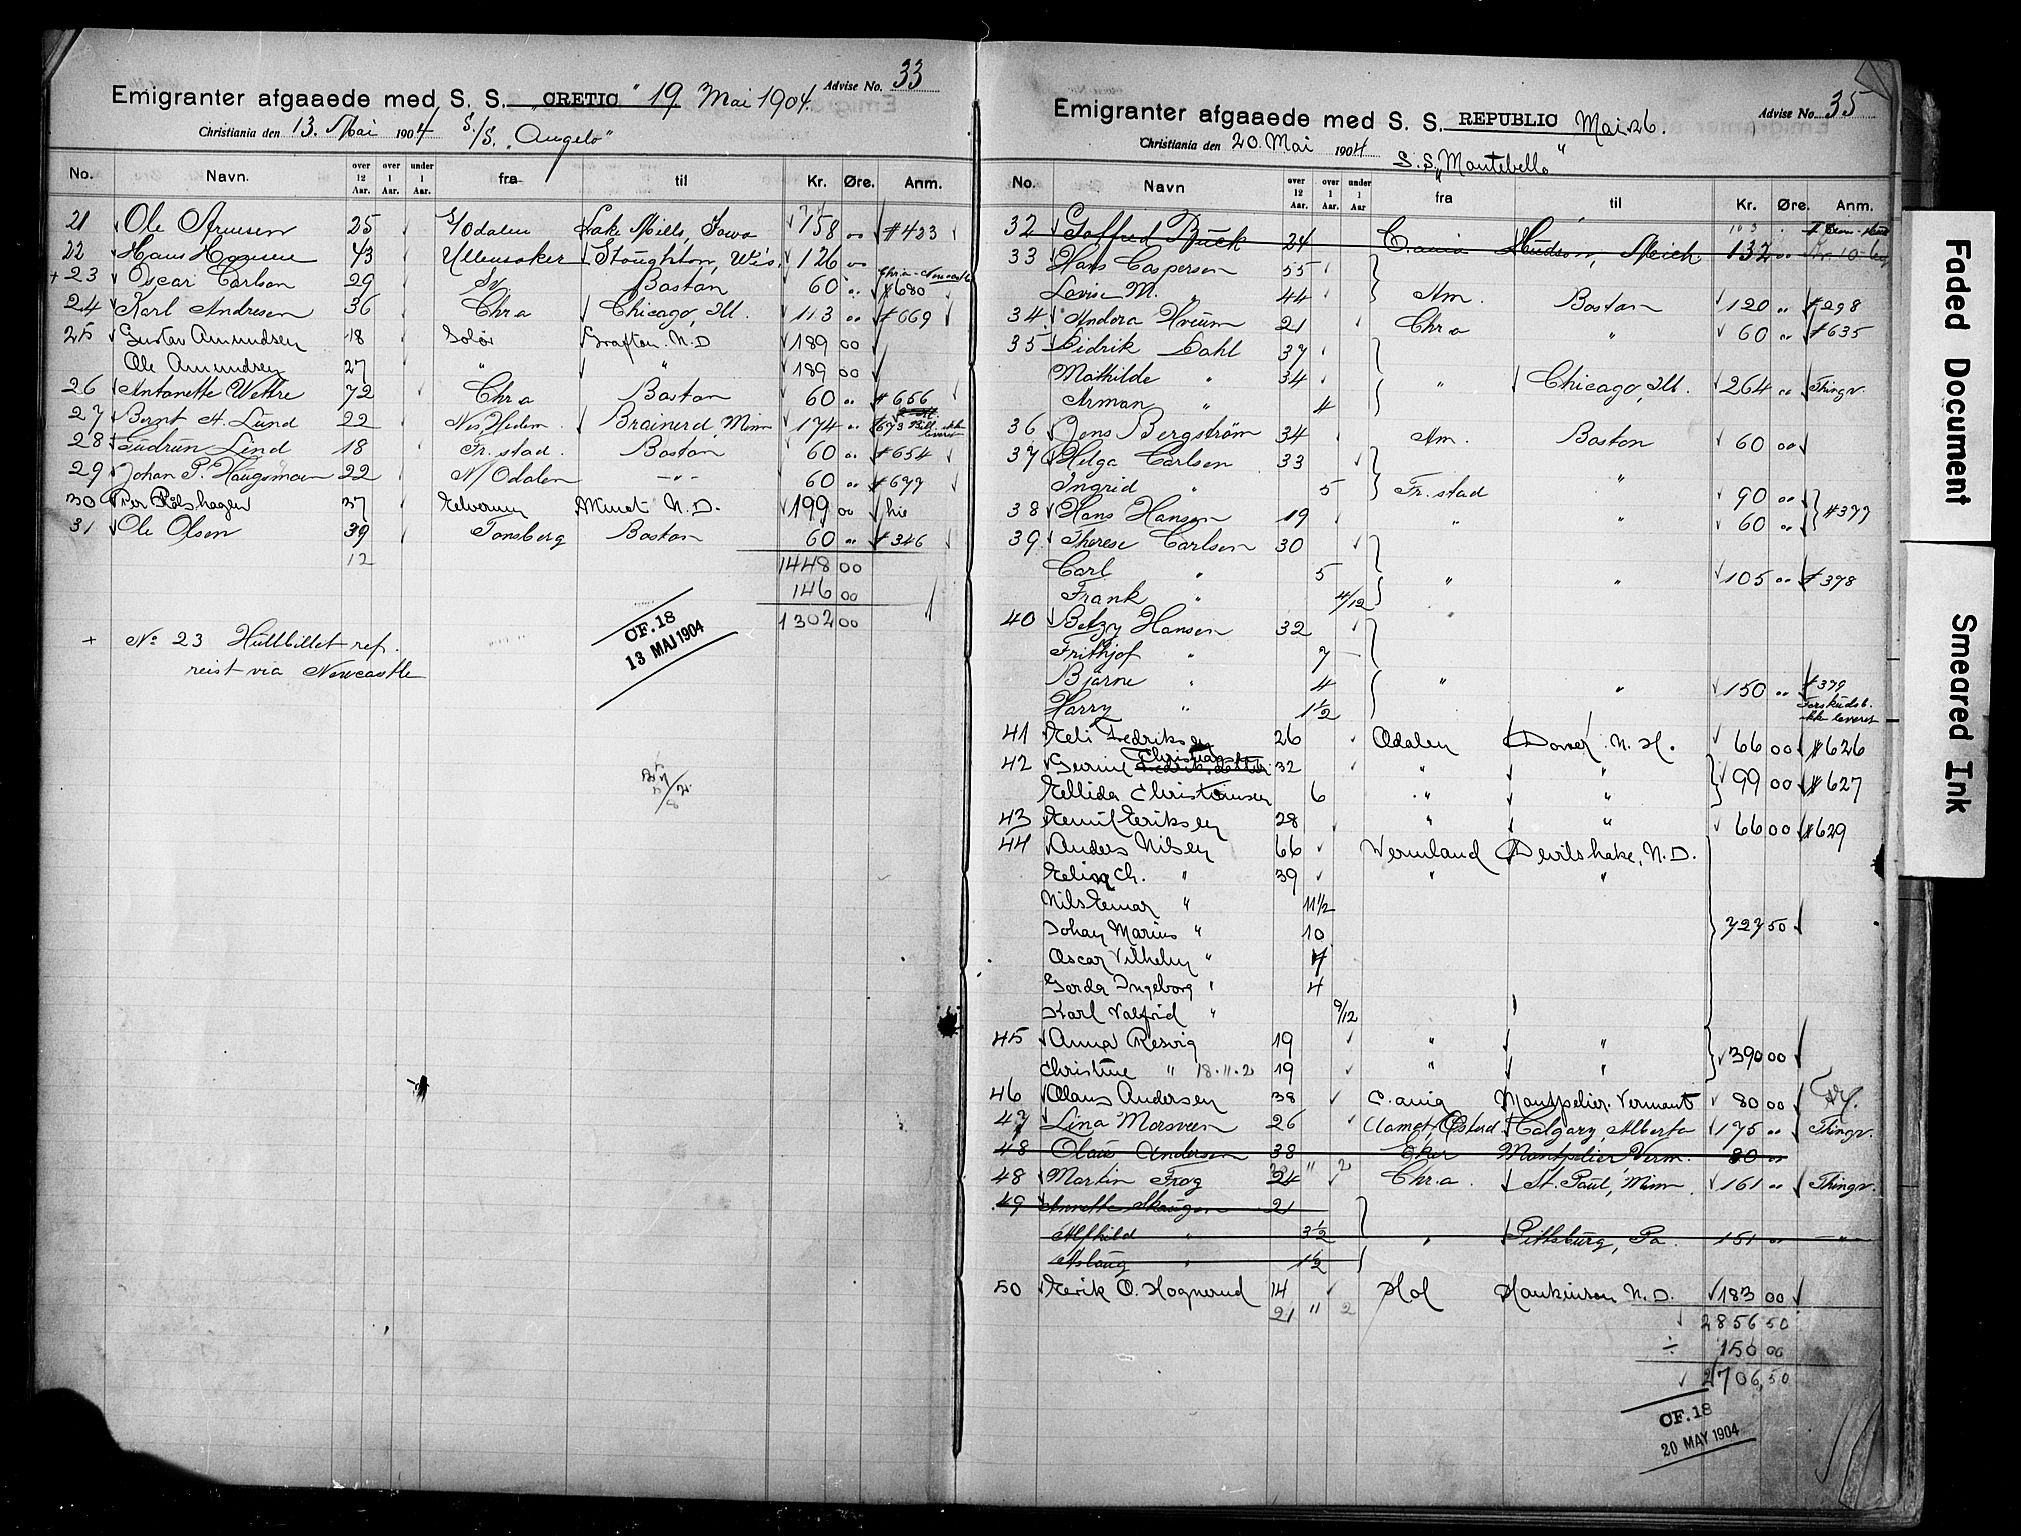 Advise No. 33
Emigranter afgaaede med S. S. „CRETIC" 19 Mai 1904.
Christiania den 13. Mai 1904 S/S. „Angelo"
No. Navn. over 12 Aar. over 1 Aar. under 1 Aar. fra til Kr. Øre. Anm.
21 Ole Arnesen 25 S/Odalen Lake Mills, Iowa 158 00 #423
22 Hans Hansen 43 Ullensaker Stoughton, Wis. 126 00
+ 23 Oscar Carlson 29 Sv. Boston 60 " Chr.a-Newcastle #680
24 Karl Andresen 36 Chr a Chicago, Ill. 113 00 #669
25 Gustav Amundsen 18 Solør Grafton N.D 189 00
Ole Amundsen 27 " " 189 00
26 Antonette Wettre 72 Chr a Boston 60 " #656
27 Bernt A. Lund 22 Nes, Hedem. Brainerd, Minn 174 " #673 Bill. ikke leveret
28 Gudrun Lind 18 Fr. stad. Boston 60 " #654
29 Johan P. Haugsmoen 22 N/Odalen -"- 60 " #677
30 Per Råshagen 37 Elverum Minot N.D. 199 00 hie
31 Ole Olsen 39 Tønsberg Boston 60 " #346
12 1448 00
146 00
1302 00
+ No 23 Hullbillet ref.
reist via Newcastle
CF.18
13 MAJ 1904
Advise No. 35
Emigranter afgaaede med S. S. REPUBLIC Mai 26.
Christiania den 20. Mai 1904 S.S. „Montebello"
No. Navn over 12 Aar. over 1 Aar. under 1 Aar fra til Kr. Øre. Anm.
32 Gotfred Buck 24 C.ania Hudson, Mich. 132 00
33 Hans Caspersen 55
Lovise M. " 44 Am. Boston 120 " #298
34 Andora Hveum 21 Chr a " 60 " #635
35 Didrik Dahl 37
Mathilde " 34 " Chicago, Ill. 264 " Thingv.
Arman " 4
36 Jens Bergström 34 Am. Boston 60 00
37 Helga Carlsen 33
Ingrid " 5 Fr. stad " 90 00
38 Hans Hansen 19 " " 60 " #377
39 Therese Carlsen 30
Carl " 5 " " 105 " #378
Frank " 4/12
40 Betzy Hansen 32
Frithjof " 7
Bjarne " 4 " " 150 " #379
Harry " 1½ Forskudsb. ikk leveret
41 Eli Fedriksen 26 Odalen Dover N. H. 66 00 #626
42 Gerine Christians 32 " " 99 00 #627
Ellida Christiansen 6 " "
43 Emil Eriksen 28 " " 66 00 #629
44 Anders Nilsen 66 Vermland Devilslake, N.D.
Elise Ch. " 39 " "
Nils Einar " 11½
Johan Marius " 10 727 50
Oscar Vilhelm " 7
Gerda Ingeborg " 4
Karl Valfrid " 9/12
45 Anna Resvig 19 " " 390 00
Christine " 18.11.2 19 " "
46 Olaus Andersen 38 C.ania Montpelier. Vermont 80 00
47 Lina Morsveen 26 Aamot, Østerd. Calgary, Alberta 175 " Thingv.
48 Olaus Andersen 38 Eker Montpelier Verm. 80 "
48 Martin Frog 24 Chr.a. St. Paul, Minn 161 " Thingv.
49 Annette Skaugen 21
Alfhild " 3½ " Pittsburg, Pa. 151 " -"-
Aslaug " 1½
50 Erik O. Hognerud 14 Hol Hankinson N.D. 183 00
21 " 2
2856 50
÷ 150 00
2706,50
CF.18
20 MAY 1904
Faded Document
Smeared Ink